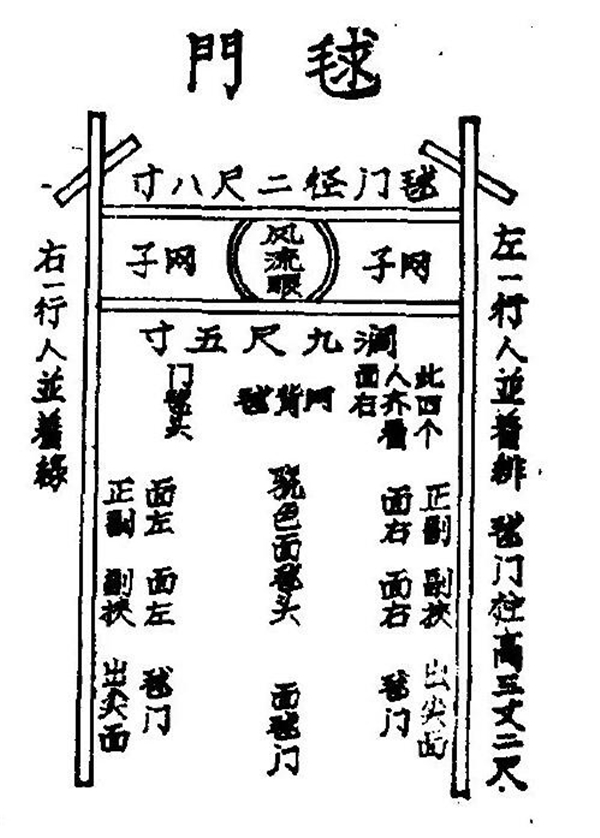 毬門
毬门径二尺八寸
网子
风流眼
网子
濶九尺五寸
左一行人並着緋 毬门柱高三丈二尺
此四个
人齐看
面右
网背毬
门毬头
正副 副挟 出尖面
面右 面右 毬门
骁色面毬头 面毬门
面左 面左 毬门
正副 副挟 出尖面
右一行人並着綠